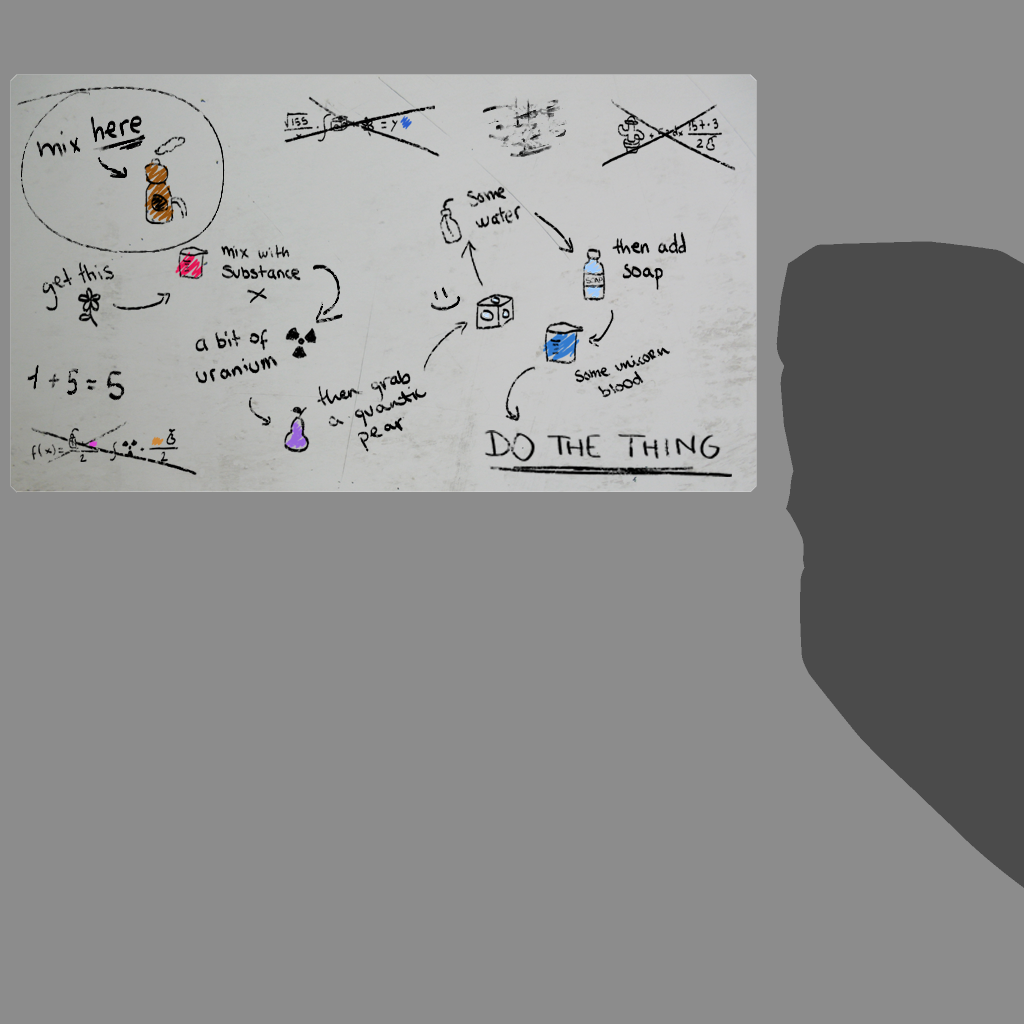 mix here
get this
mix with
Substance
X
a bit of
uranium
then grab
a quantic
pear
some
water
then add
soap
SOAP
some unicorn
blood
DO THE THING
1 + 5 = 5
√155
= y
157·3
2
f(x)=
2
2